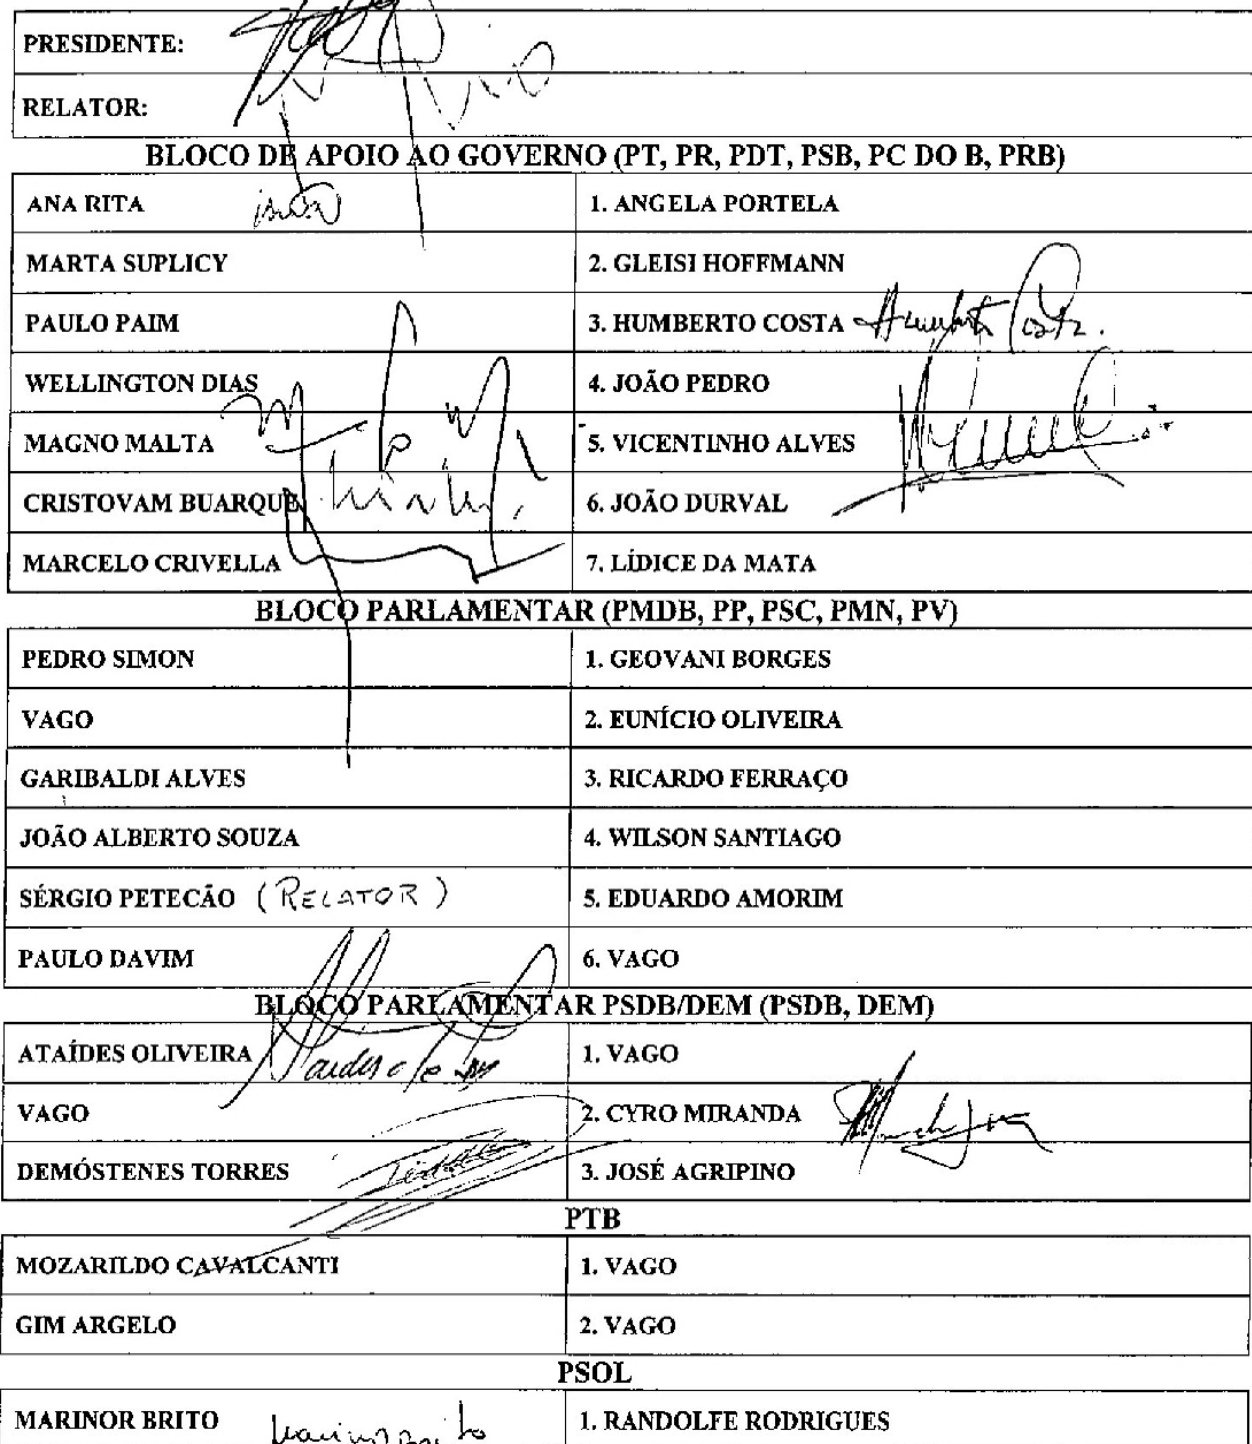 PRESIDENTE:
RELATOR:
BLOCO DE APOIO AO GOVERNO (PT, PR, PDT, PSB, PC DO B, PRB)
ANA RITA 1. ANGELA PORTELA
MARTA SUPLICY 2. GLEISI HOFFMANN
PAULO PAIM 3. HUMBERTO COSTA Humberto Costa.
WELLINGTON DIAS 4. JOÃO PEDRO
MAGNO MALTA 5. VICENTINHO ALVES
CRISTOVAM BUARQUE 6. JOÃO DURVAL
MARCELO CRIVELLA 7. LÍDICE DA MATA
BLOCO PARLAMENTAR (PMDB, PP, PSC, PMN, PV)
PEDRO SIMON 1. GEOVANI BORGES
VAGO 2. EUNÍCIO OLIVEIRA
GARIBALDI ALVES 3. RICARDO FERRAÇO
JOÃO ALBERTO SOUZA 4. WILSON SANTIAGO
SÉRGIO PETECÃO (RELATOR) 5. EDUARDO AMORIM
PAULO DAVIM 6. VAGO
BLOCO PARLAMENTAR PSDB/DEM (PSDB, DEM)
ATAÍDES OLIVEIRA 1. VAGO
VAGO 2. CYRO MIRANDA
DEMÓSTENES TORRES 3. JOSÉ AGRIPINO
PTB
MOZARILDO CAVALCANTI 1. VAGO
GIM ARGELO 2. VAGO
PSOL
MARINOR BRITO Marinor Brito 1. RANDOLFE RODRIGUES